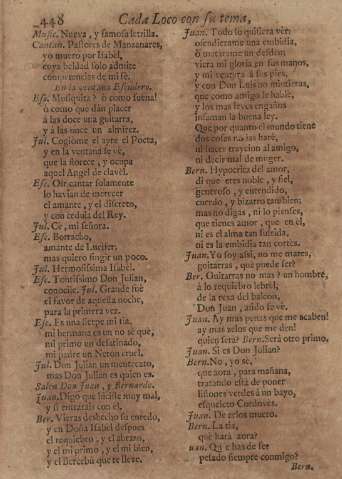 448 Cada Loco con su tema,
Music. Nueva, y famosa letrilla.
Cantan. Pastores de Manzanares,
yo muero por Isabel,
cuya beldad solo admite
de mi fè.
En la ventana Escudero.
Esc. Musiquita? ò como suena!
ò como que dàn placer
à las doce una guitarra,
y à las once un almirez.
Jul. Cogiome el ayre el Poeta,
y en la ventana se vè,
que la florece, y ocupa
aquel Angel de clavel.
Esc. Oir cantar solamente
lo havian de merecer
el amante, y el discreto,
y con cedula del Rey.
Jul. Ce, mi señora.
Esc. Borracho,
amante de Lucifer,
mas quiero fingir un poco.
Jul. Hermosissima Isabel.
Esc. Tontissimo Don Julian,
conocile. Jul. Grande fue
el favor de aquella noche,
para la primera vez.
Esc. Es una sierpe mi tia,
mi hermana es un no sè què,
mi primo un desatinado,
mi padre un Neron cruel.
Jul. Don Julian un
mas Don Julian es quien es.
Salen Don Juan, y Bernardo.
Juan. Digo que hiciste muy mal,
y si entrarais con el,
Ber. Vieras deshecho su enredo,
y en Doña Isabel despues
el requiebro, y el abrazo,
y el mi primo, y el mi bien,
y el Bercebù que te lleve.
Juan. Todo lo quisiera vèr:
ofendierame una embidia,
ò matarame un desdèn,
viera mi gloria en sus manos,
y mi ventura à sus pies,
y con Don Luis no mintieras,
que como amigo le hablè,
y los mas leves engaños
infaman la buena ley.
Que por quanto el mundo tiene
dos cosas no las harè,
ni hacer traycion al amigo,
ni decir mal de muger.
Bern. Hypocrita del amor,
di que eres noble, y fiel,
generoso, y entendido,
cuerdo, y bizarro tambien;
mas no digas, ni lo pienses,
que tienes amor, que en èl,
ni es el alma tan sufrida,
ni es la embidia tan cortès.
Juan. Yo soy assi, no me mates,
guitarras, què puede ser?
Ber. Guitarras no mas? un hombre,
à lo requiebro lebrèl,
de la rexa del balcon,
Don Juan, asido se vè.
Juan. Ay mas penas que me acaben!
ay mas zelos que me den!
quien serà? Bern. Serà otro primo,
Juan. Si es Don Julian?
Bern. No, yo sè,
que aora, para mañana,
tratando està de poner
listones verdes à un bayo,
esqueleto Cordovès.
Juan. De zelos muero.
Bern. La tia,
què harà aora?
Juan. Què has de ser
pesado siempre conmigo?
Bern.